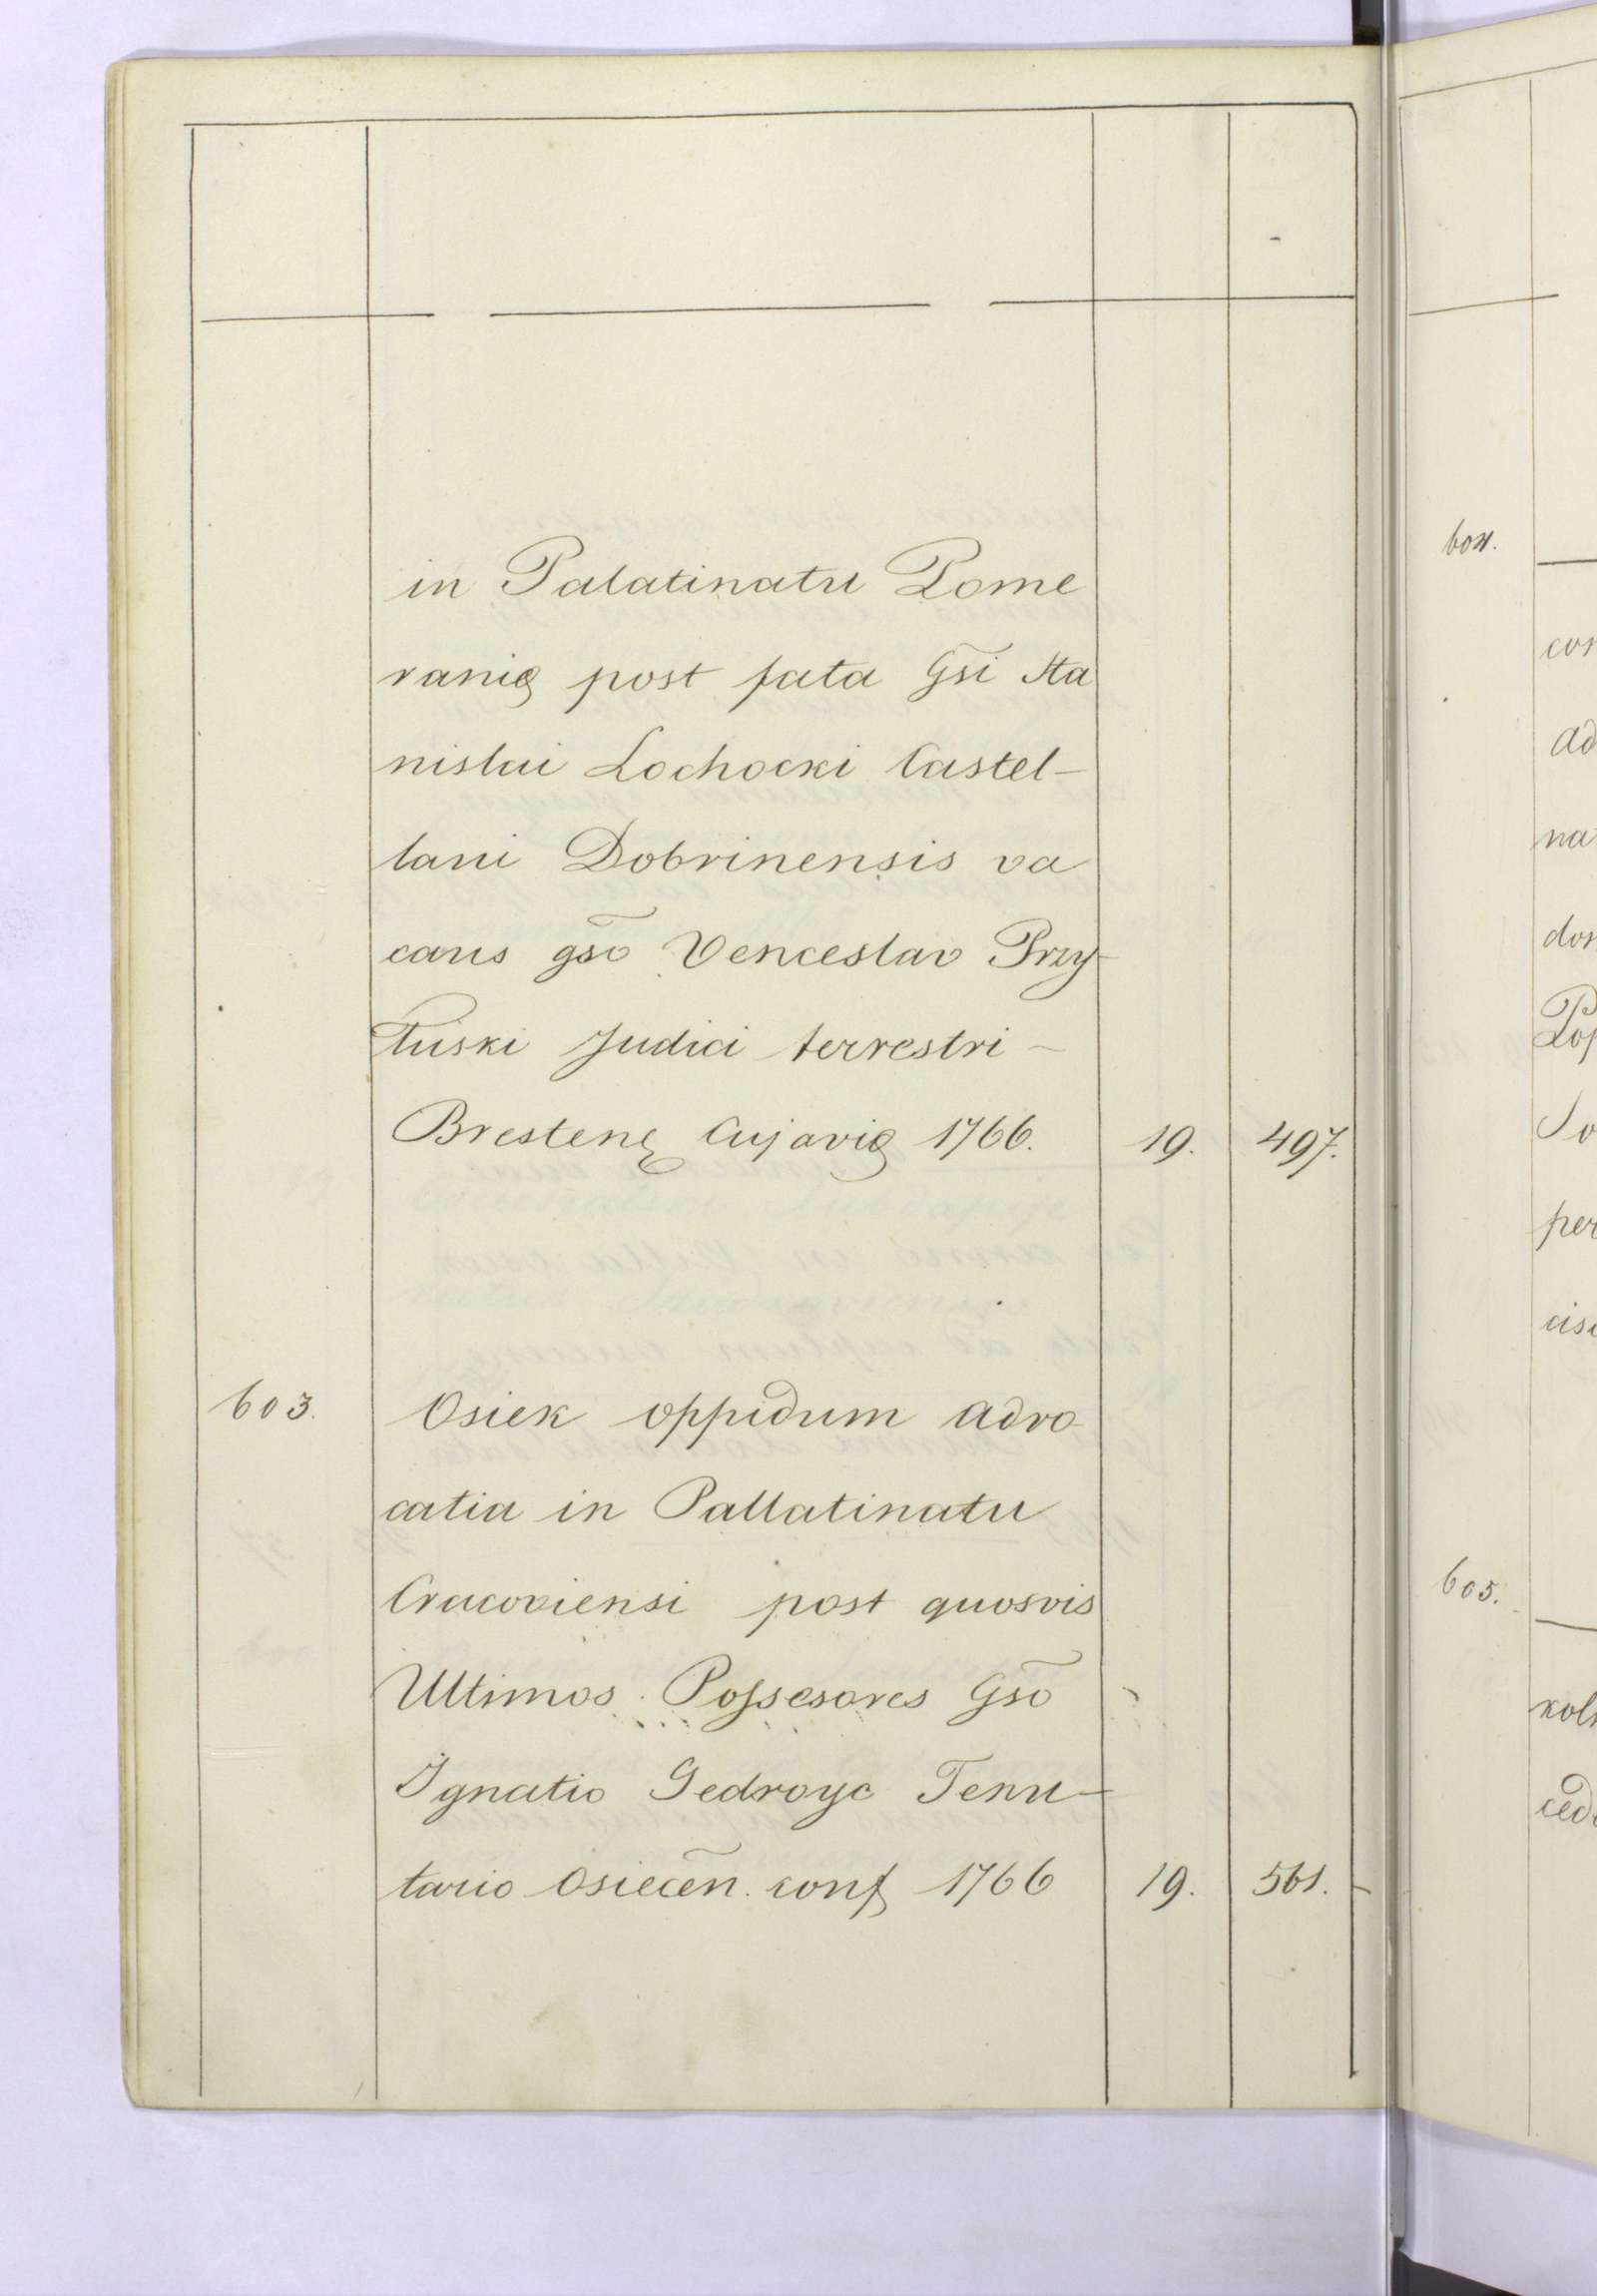 in Palatinatu Pome
ranię post fata Gsi Sta
nislai Lochocki Castel-
lani Dobrinensis va
cans gso Venceslao Przy-
łuski Judici terrestri -
Brestenę Cujavię 1766. 19. 497.
603. Osiek oppidum advo
catia in Pallatinatu
Cracoviensi post quosvis
Ultimos Possesores Gso
Ignatio Gedroyc Tenu-
tario Osiecen. conf 1766 19. 561.
604.
605.